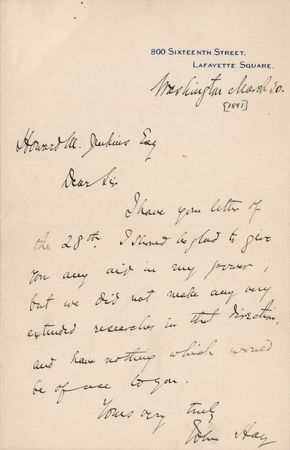 800 Sixteenth Street,
Lafayette Square.
Washington March 30.
[1891]
Howard M. Jenkins Esq
Dear Sir
I have your letter of
the 28th. I should be glad to give
you any aid in my power;
but we did not make any very
extended researches in that direction,
and have nothing which would
be of use to you.
Yours very truly
John Hay